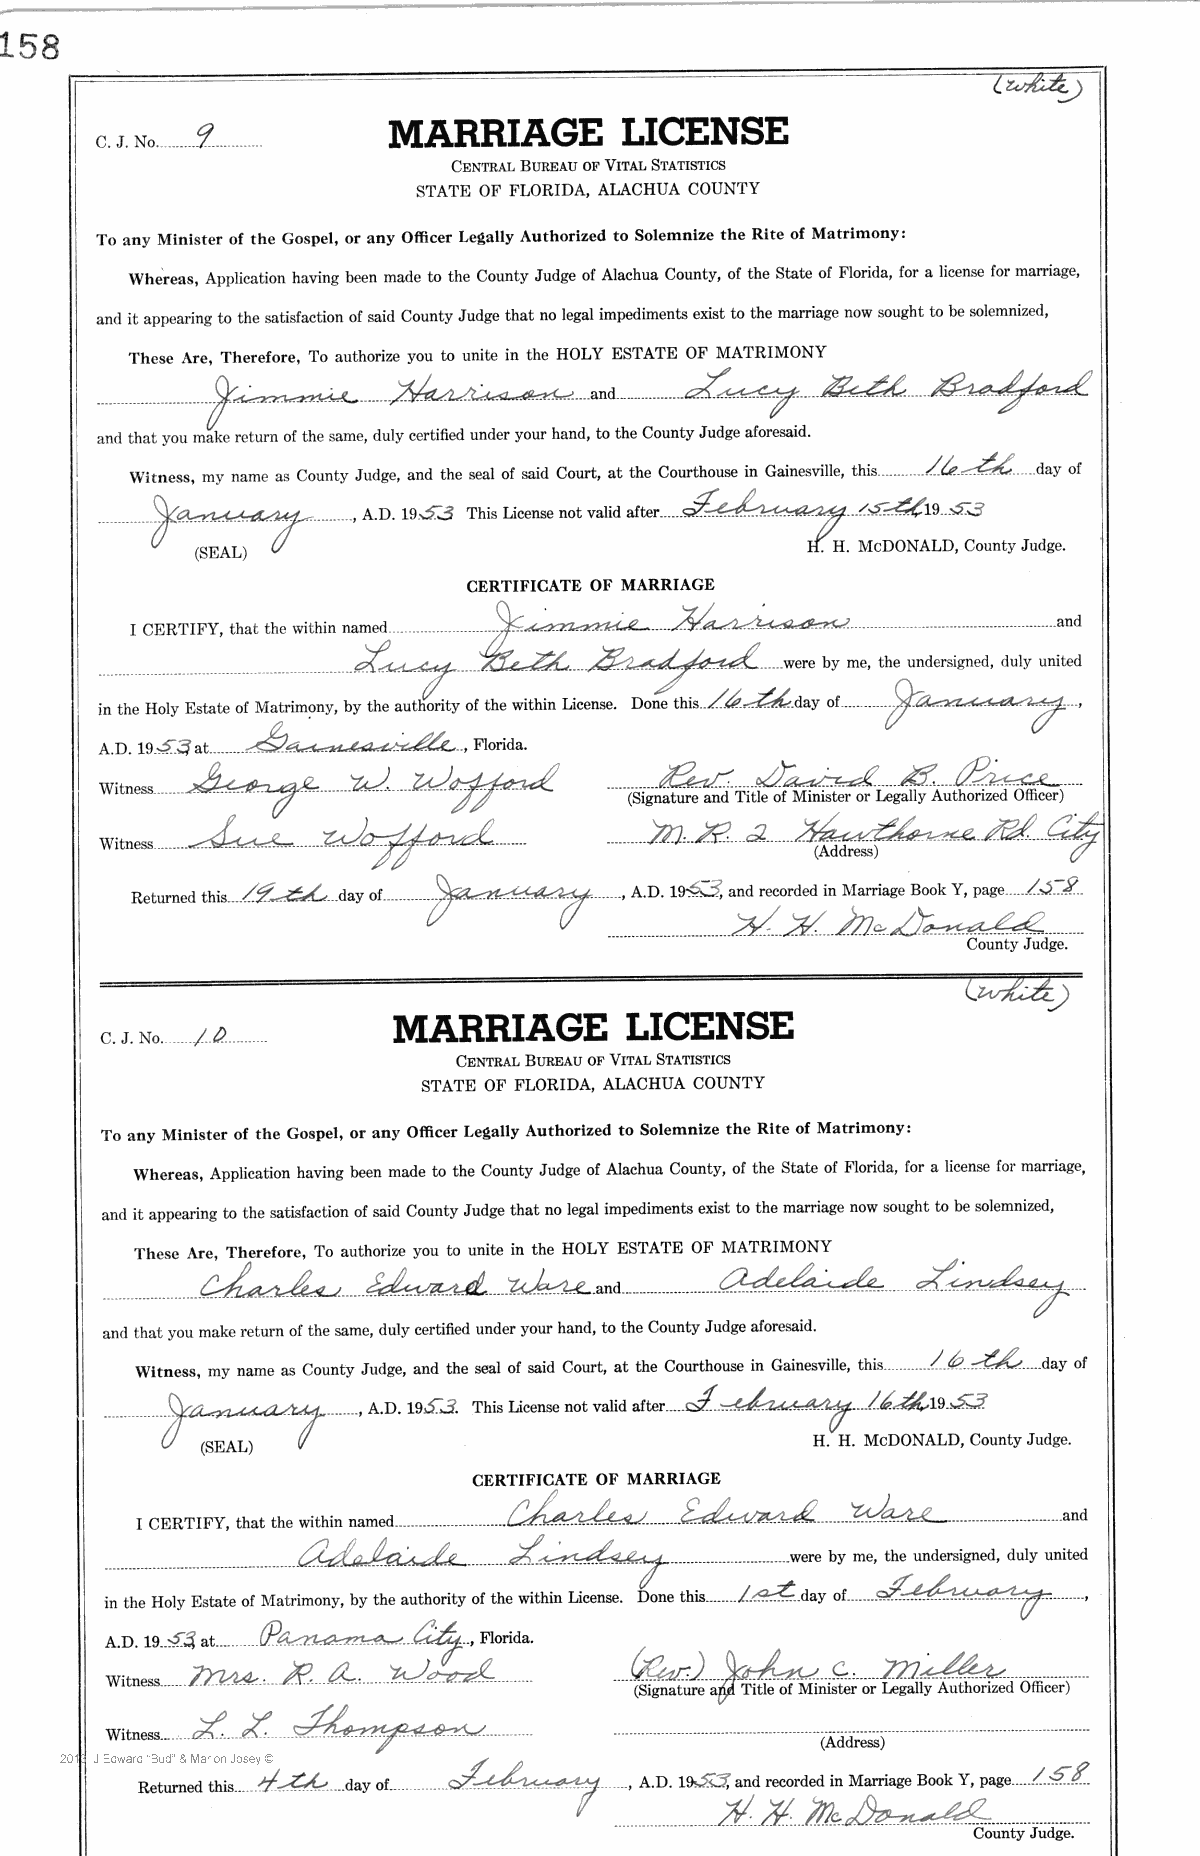 158
(White)
C. J. No. 9
MARRIAGE LICENSE
CENTRAL BUREAU OF VITAL STATISTICS
STATE OF FLORIDA, ALACHUA COUNTY
To any Minister of the Gospel, or any Officer Legally Authorized to Solemnize the Rite of Matrimony:
Whereas, Application having been made to the County Judge of Alachua County, of the State of Florida, for a license for marriage,
and it appearing to the satisfaction of said County Judge that no legal impediments exist to the marriage now sought to be solemnized,
These Are, Therefore, To authorize you to unite in the HOLY ESTATE OF MATRIMONY
Jimmie Harrison and Lucy Beth Bradford
and that you make return of the same, duly certified under your hand, to the County Judge aforesaid.
Witness, my name as County Judge, and the seal of said Court, at the Courthouse in Gainesville, this 16th day of
January, A.D. 1953 This License not valid after February 15th, 1953
(SEAL) H. H. McDONALD, County Judge.
CERTIFICATE OF MARRIAGE
I CERTIFY, that the within named Jimmie Harrison and
Lucy Beth Bradford were by me, the undersigned, duly united
in the Holy Estate of Matrimony, by the authority of the within License. Done this 16th day of January,
A.D. 1953, at Gainesville, Florida.
Witness George W. Wofford Rev. David B. Price
(Signature and Title of Minister or Legally Authorized Officer)
Witness Sue Wofford M. R. 2 Hawthorne Rd. City
(Address)
Returned this 19th day of January, A.D. 1953, and recorded in Marriage Book Y, page 158
H. H. McDonald
County Judge.
(White)
C. J. No. 10
MARRIAGE LICENSE
CENTRAL BUREAU OF VITAL STATISTICS
STATE OF FLORIDA, ALACHUA COUNTY
To any Minister of the Gospel, or any Officer Legally Authorized to Solemnize the Rite of Matrimony:
Whereas, Application having been made to the County Judge of Alachua County, of the State of Florida, for a license for marriage,
and it appearing to the satisfaction of said County Judge that no legal impediments exist to the marriage now sought to be solemnized,
These Are, Therefore, To authorize you to unite in the HOLY ESTATE OF MATRIMONY
Charles Edward Ware and Adelaide Lindsey
and that you make return of the same, duly certified under your hand, to the County Judge aforesaid.
Witness, my name as County Judge, and the seal of said Court, at the Courthouse in Gainesville, this 16th day of
January, A.D. 1953. This License not valid after February 16th, 1953
(SEAL) H. H. McDONALD, County Judge.
CERTIFICATE OF MARRIAGE
I CERTIFY, that the within named Charles Edward Ware and
Adelaide Lindsey were by me, the undersigned, duly united
in the Holy Estate of Matrimony, by the authority of the within License. Done this 1st day of February,
A.D. 1953, at Panama City, Florida.
Witness Mrs. R. A. Wood (Rev.) John C. Miller
(Signature and Title of Minister or Legally Authorized Officer)
Witness L. L. Thompson
(Address)
J Edward "Bud" & Marion Josey ©
Returned this 4th day of February, A.D. 1953, and recorded in Marriage Book Y, page 158
H. H. McDonald
County Judge.